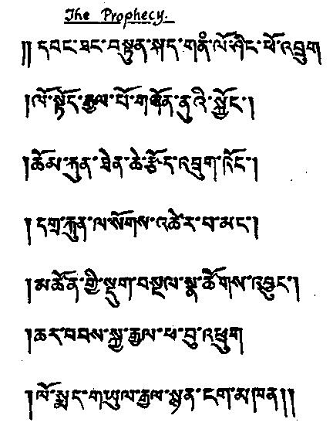 The Prophecy.
༎ དབང་ཐང་བསྟུན་སྐད་གནཾ་ལོ་ཤིང་ཕོ་འབྲུག
།ལོ་སྟོད་རྒྱལ་པོ་གཞོན་ནུའི་སྐྱོང་།
།ཆོམ་རྐུན་ཆེ་རྩོད་
།དགྲ་རྐུན་ལ་སོགས་འཚེར་བ་མང་།
།མཚོན་གྱི་སྡུག་བསྔལ་སྣ་ཚོགས་འབྱུང་།
།ཆར་བབས་སྐྱ་རྒྱལ་ཕ་བུ་འཁྲུག
།ལོ་སྨད་གཡུལ་རྒྱལ་སྙན་ངག་མཁན།།